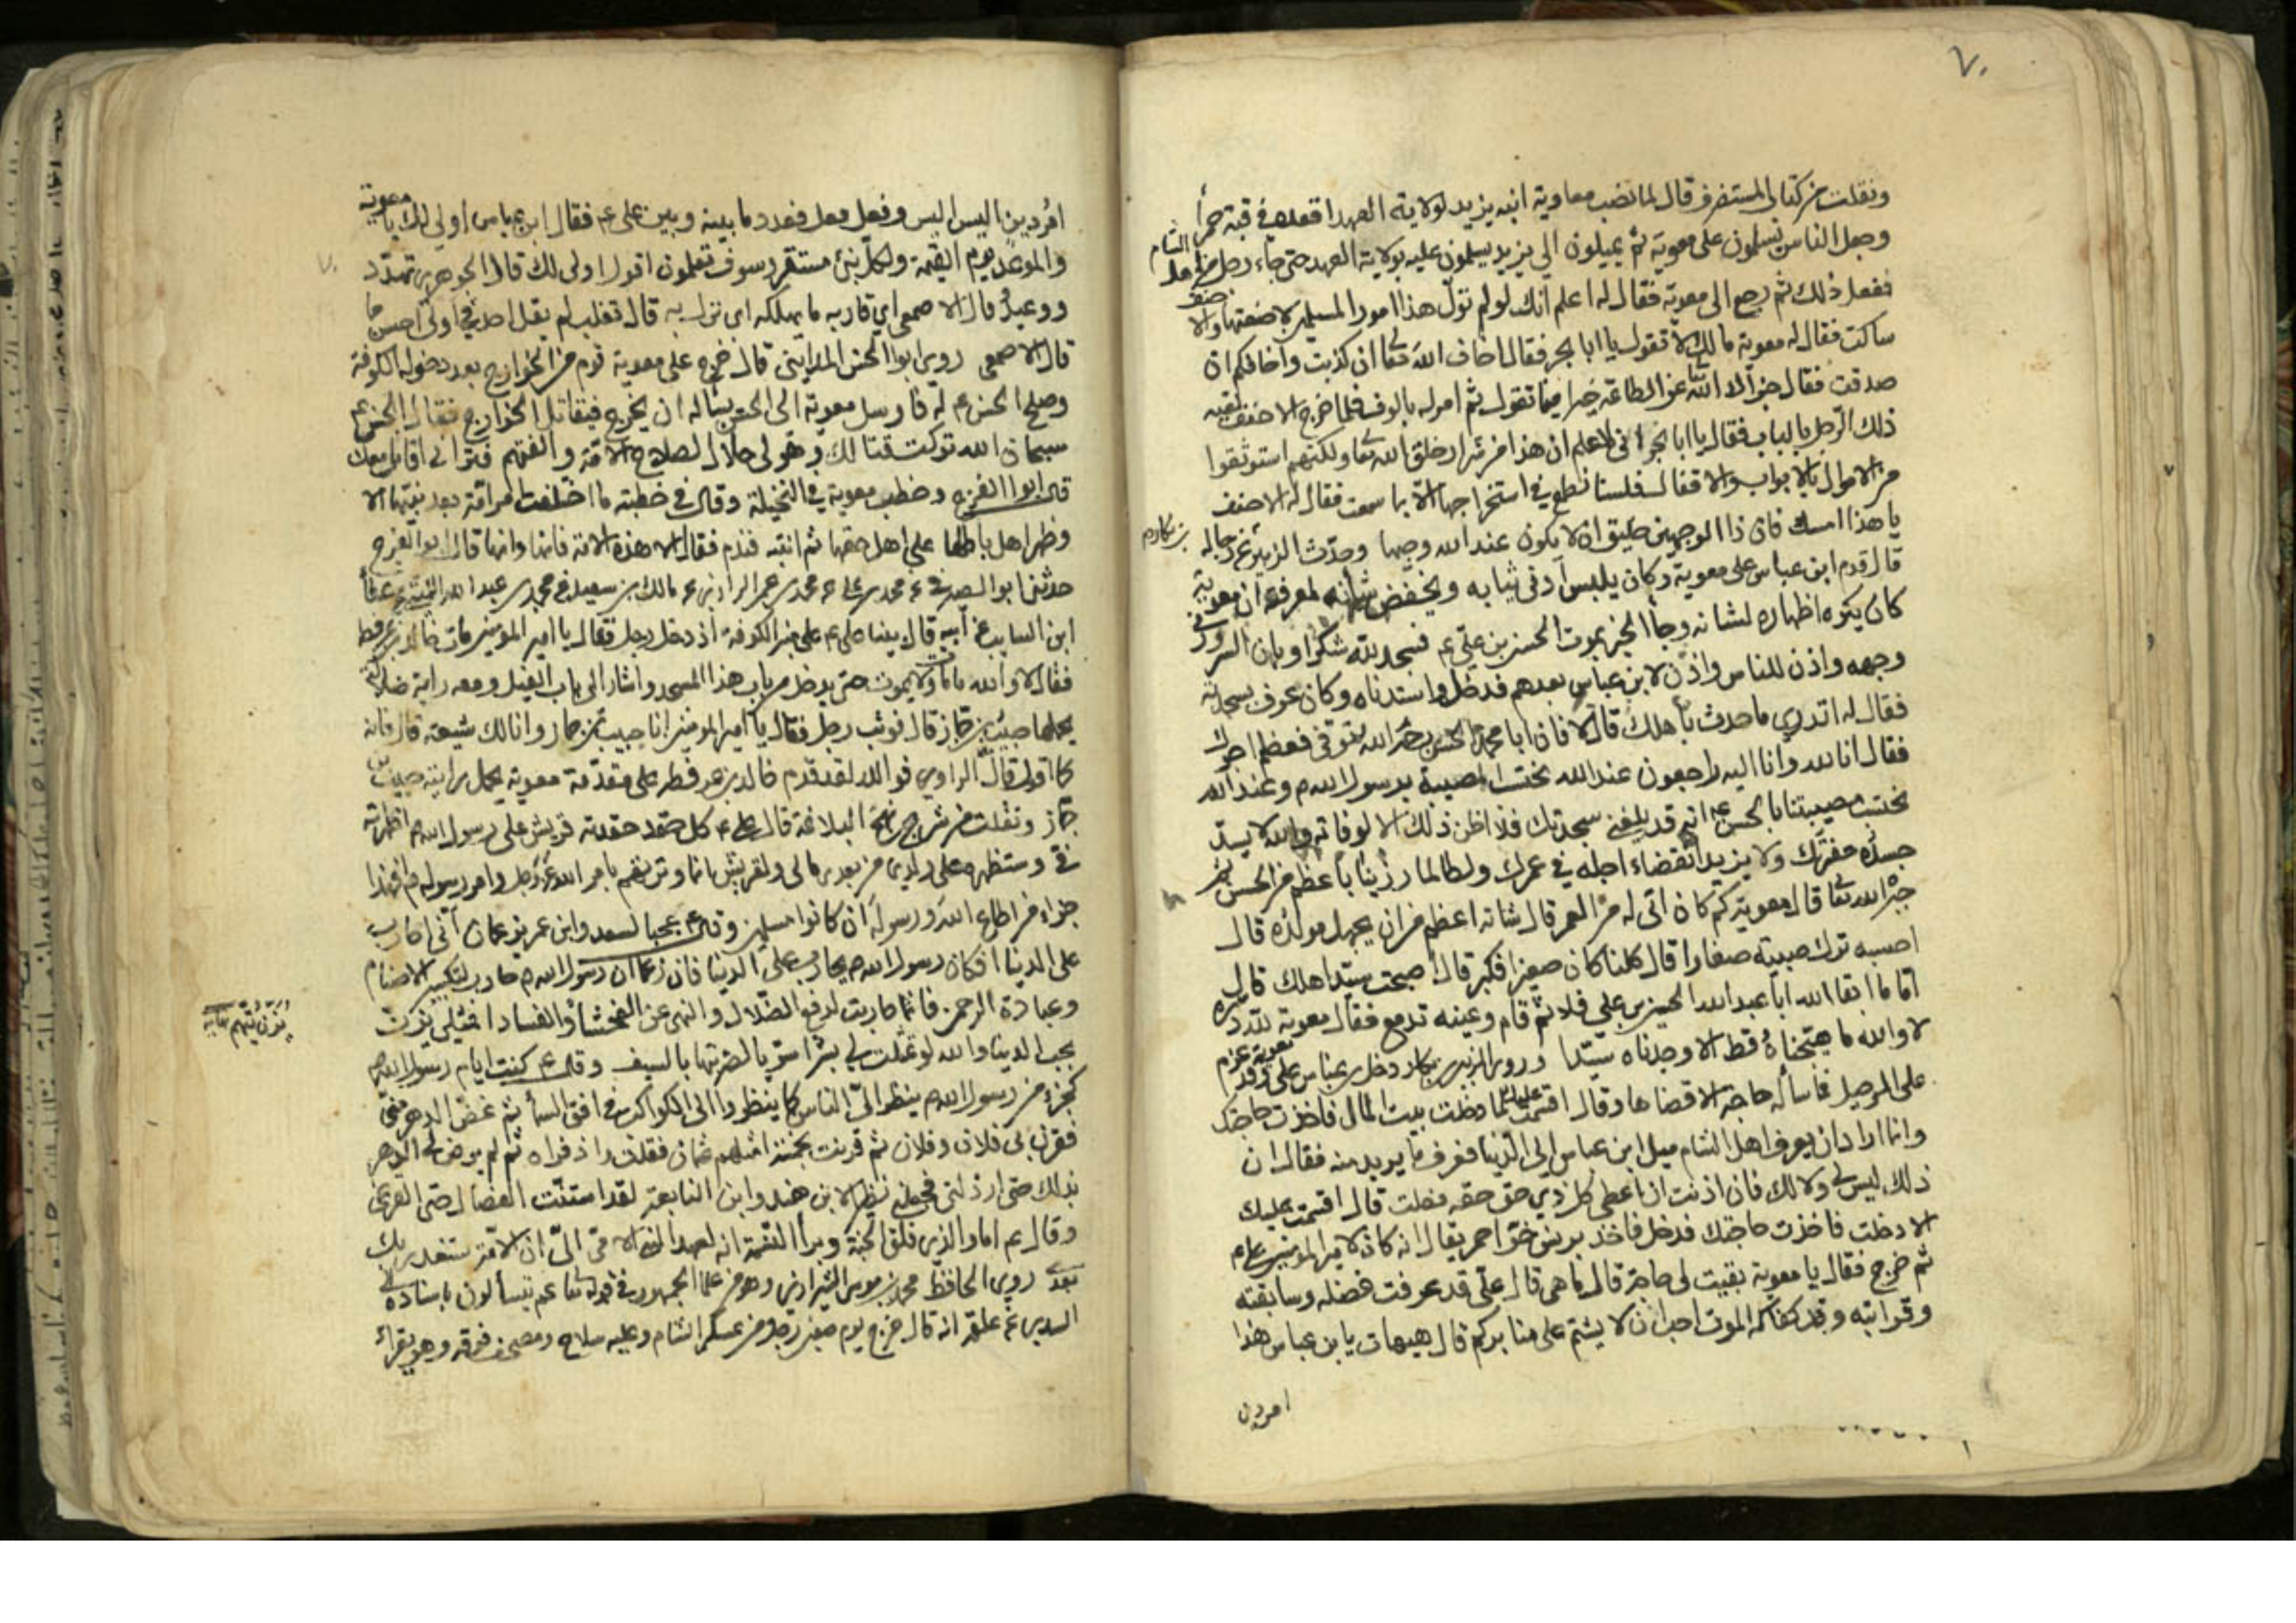 ٧٠
ونقلت من كتاب المستغرق قال لما نصب معاوية ابنه يزيد لولاية العهد اقعده في قبة حمرا
وجعل الناس يسلمون على معوية ثم يميلون الى يزيد يسلمون عليه بولاية العهد حتى جاء رجل من اهل الشام
ففعل ذلك ثم رجع الى معوية فقال له اعلم انك لو لم تول هذا امور المسلمين لاضعتها والاحنف
ساكت فقال له معوية ما لك لا تقول يا ابا بحر فقال اخاف الله تعا ان كذبت واخافكم ان
صدقت فقال جزاك الله عن الطاعة خيرا فيما تقول ثم امر له بالوف فلما خرج الاحنف لقيه
ذلك الرجل بالباب فقال يا ابا بحر انى لاعلم ان هذا من شرار خلق الله تعا ولكنهم استوثقوا
من الاموال بالابواب والاقفال فلسنا نطمع في استخراجها الا بما سمعت فقال له الاحنف
يا هذا امسك فان ذا الوجهين خليق ان لا يكون عند الله وجيها وحدث الزبير عن رجاله
قال قدم ابن عباس على معوية وكان يلبس ادنى ثيابه ويخفض شانه لمعرفته ان معوية
كان يكره اظهاره لشانه وجا الخبر بموت الحسن بن علي ع فسجد لله شكرا وبان السرور في
وجهه واذن للناس واذن لابن عباس بعدهم فدخل واستدناه وكان عرف بسجدته
فقال له اتدري ما حدث باهلك قال لا قال فان ابا محمد الحسن رحمه الله توفى فعظم اجرك
فقال انا لله وانا اليه راجعون عند الله نحتسب المصيبة برسول الله ص وعند الله
نحتسب مصيبتنا بالحسن ع انه قد بلغني سجدتك فلا اظن ذلك الا لوفاته والله لا يسد
جسده حفرتك ولا يزيد انقضاء اجله في عمرك ولطالما رزينا باعظم من الحسن ثم
جبر الله تعا قال معوية كم كان اتى له من العمر قال شانه اعظم من ان يجهل مولده قال
احسبه ترك صبية صغارا قال كلنا كان صغيرا فكبر قال اصبحت سيد اهلك قال
اما ما ابقا الله ابا عبدالله الحسين بن علي فلا ثم قام وعينه تدمع فقال معوية لله دره
لا والله ما هيجناه قط الا وجدناه سيدا وروى الزبير بن بكار دخل بن عباس على معوية وقد عزم
على الرحيل فاسأله حاجة الا قضاها وقال اقسمت عليك لما دخلت بيت المال فاخذت حاجتك
وانما اراد ان يعرف اهل الشام ميل ابن عباس الى الدنيا فعرف ما يريد منه فقال ان
ذلك ليس لي ولا لك فان اذنت ان اعطى كل ذي حق حقه فعلت قال اقسمت عليك
الا دخلت فاخذت حاجتك فدخل فاخذ برنس خز احمر يقال انه كان لامير المؤمنين علي ع
ثم خرج فقال يا معوية بقيت لى حاجة قال ما هي قال علي قد عرفت فضله وسابقته
وقرابته وقد كفاكه الموت احب ان لا يشتم على منابركم قال هيهات يا بن عباس هذا
امر دين
امر دين اليس اليس وفعل وفعل فعدد ما بينه وبين على ع فقال ابن عباس اولى لك يا معوية
والموعد يوم القيمة ولكل نبئ مستقر وسوف تعلمون اقول اولى لك قال الجوهرى تهدد
ووعيد قال الاصمعي اي قاربه ما يهلكه اى نزل به قال ثعلب لم يقل احد في اولى احسن مما
قال الاصمعى روى ابو الحسن المدايني قال خرج على معوية قوم من الخوارج بعد دخوله الكوفة
وصلح الحسن ع له فارسل معوية الى الحسن يساله ان يخرج فيقاتل الخوارج فقال الحسن ع
سبحان الله تركت قتالك وهو لي حلال لصلاح الامة والفتهم فترانى اقاتل معك
قال ابو الفرج وخطب معوية في النخيلة وقال في خطبته ما اختلفت امر امة بعد نبيها الا
وظهر اهل باطلها على اهل حقها ثم انتبه فندم فقال الا هذه الامة فانها وانها قال ابو الفرج
ابن السايب عن ابيه قال بينا على ع على منبر الكوفة اذ دخل رجل فقال يا امير المؤمنين مات خالد بن عرفطة
فقال لا والله ما مات ولا يموت حتى يدخل من باب هذا المسجد واشار الى باب الفيل ومعه راية ضلالة
يحملها حبيب بن قال فوثب رجل فقال يا امير المؤمنين انا حبيب بن حمار وانا لك شيعة قال فانه
كما اقول قال الراوي فوالله لقد قدم خالد بن عرفطه على مقدمة معوية يحمل رايته حبيب بن
ونقلت من شرح نهج البلاغة قال على ع كل حقد حقدته قريش على رسول الله ص اظهرته
في وستظهره على ولدي من بعدى مالى ولقريش انما وترتهم بامر الله عز وجل وامر رسوله ص افهذا
جزاء من اطاع الله ورسوله ان كانوا مسلمين وقال ع عجبا لسعد وابن عمر يزعمان اني احارب
على الدنيا افكان رسول الله ص يحارب على الدنيا فان زعما ان رسول الله ص حارب لتكسير الاصنام
وعبادة الرحمن فانما حاربت لدفع الضلال والنهى عن الفحشا والفساد افمثلي يزن
بحب الدنيا والله لو تمثلت لي بشرا سويا لضربتها بالسيف وقال ع كنت ايام رسول الله ص
كجزء من رسول الله ص ينظر الى الناس كما ينظروا الى الكواكب في افق السما ثم غض الدهر مني
فقرن بى فلان وفلان ثم قرنت بخمسة امثلهم عثمان فقلت وا ذفراه ثم لم يرض لي الدهر
بذلك حتى ارذلنى فجعلنى نظيرا لابن هند وابن النابغة لقد استنت الفصال حتى القرعى
وقال ع اما والذي فلق الحبة وبرأ النسمة انه لعهد النبي الامي الى ان الامة ستغدر بك
بعدى روى الحافظ محمد بن موسى الشيرازى وهو من علما الجمهور في قوله تعا عم يتسألون باسناده الى
السدى عن علقمه انه قال خرج يوم صفين رجل من عسكر الشام وعليه سلاح ومصحف فوقه وهو يقراء